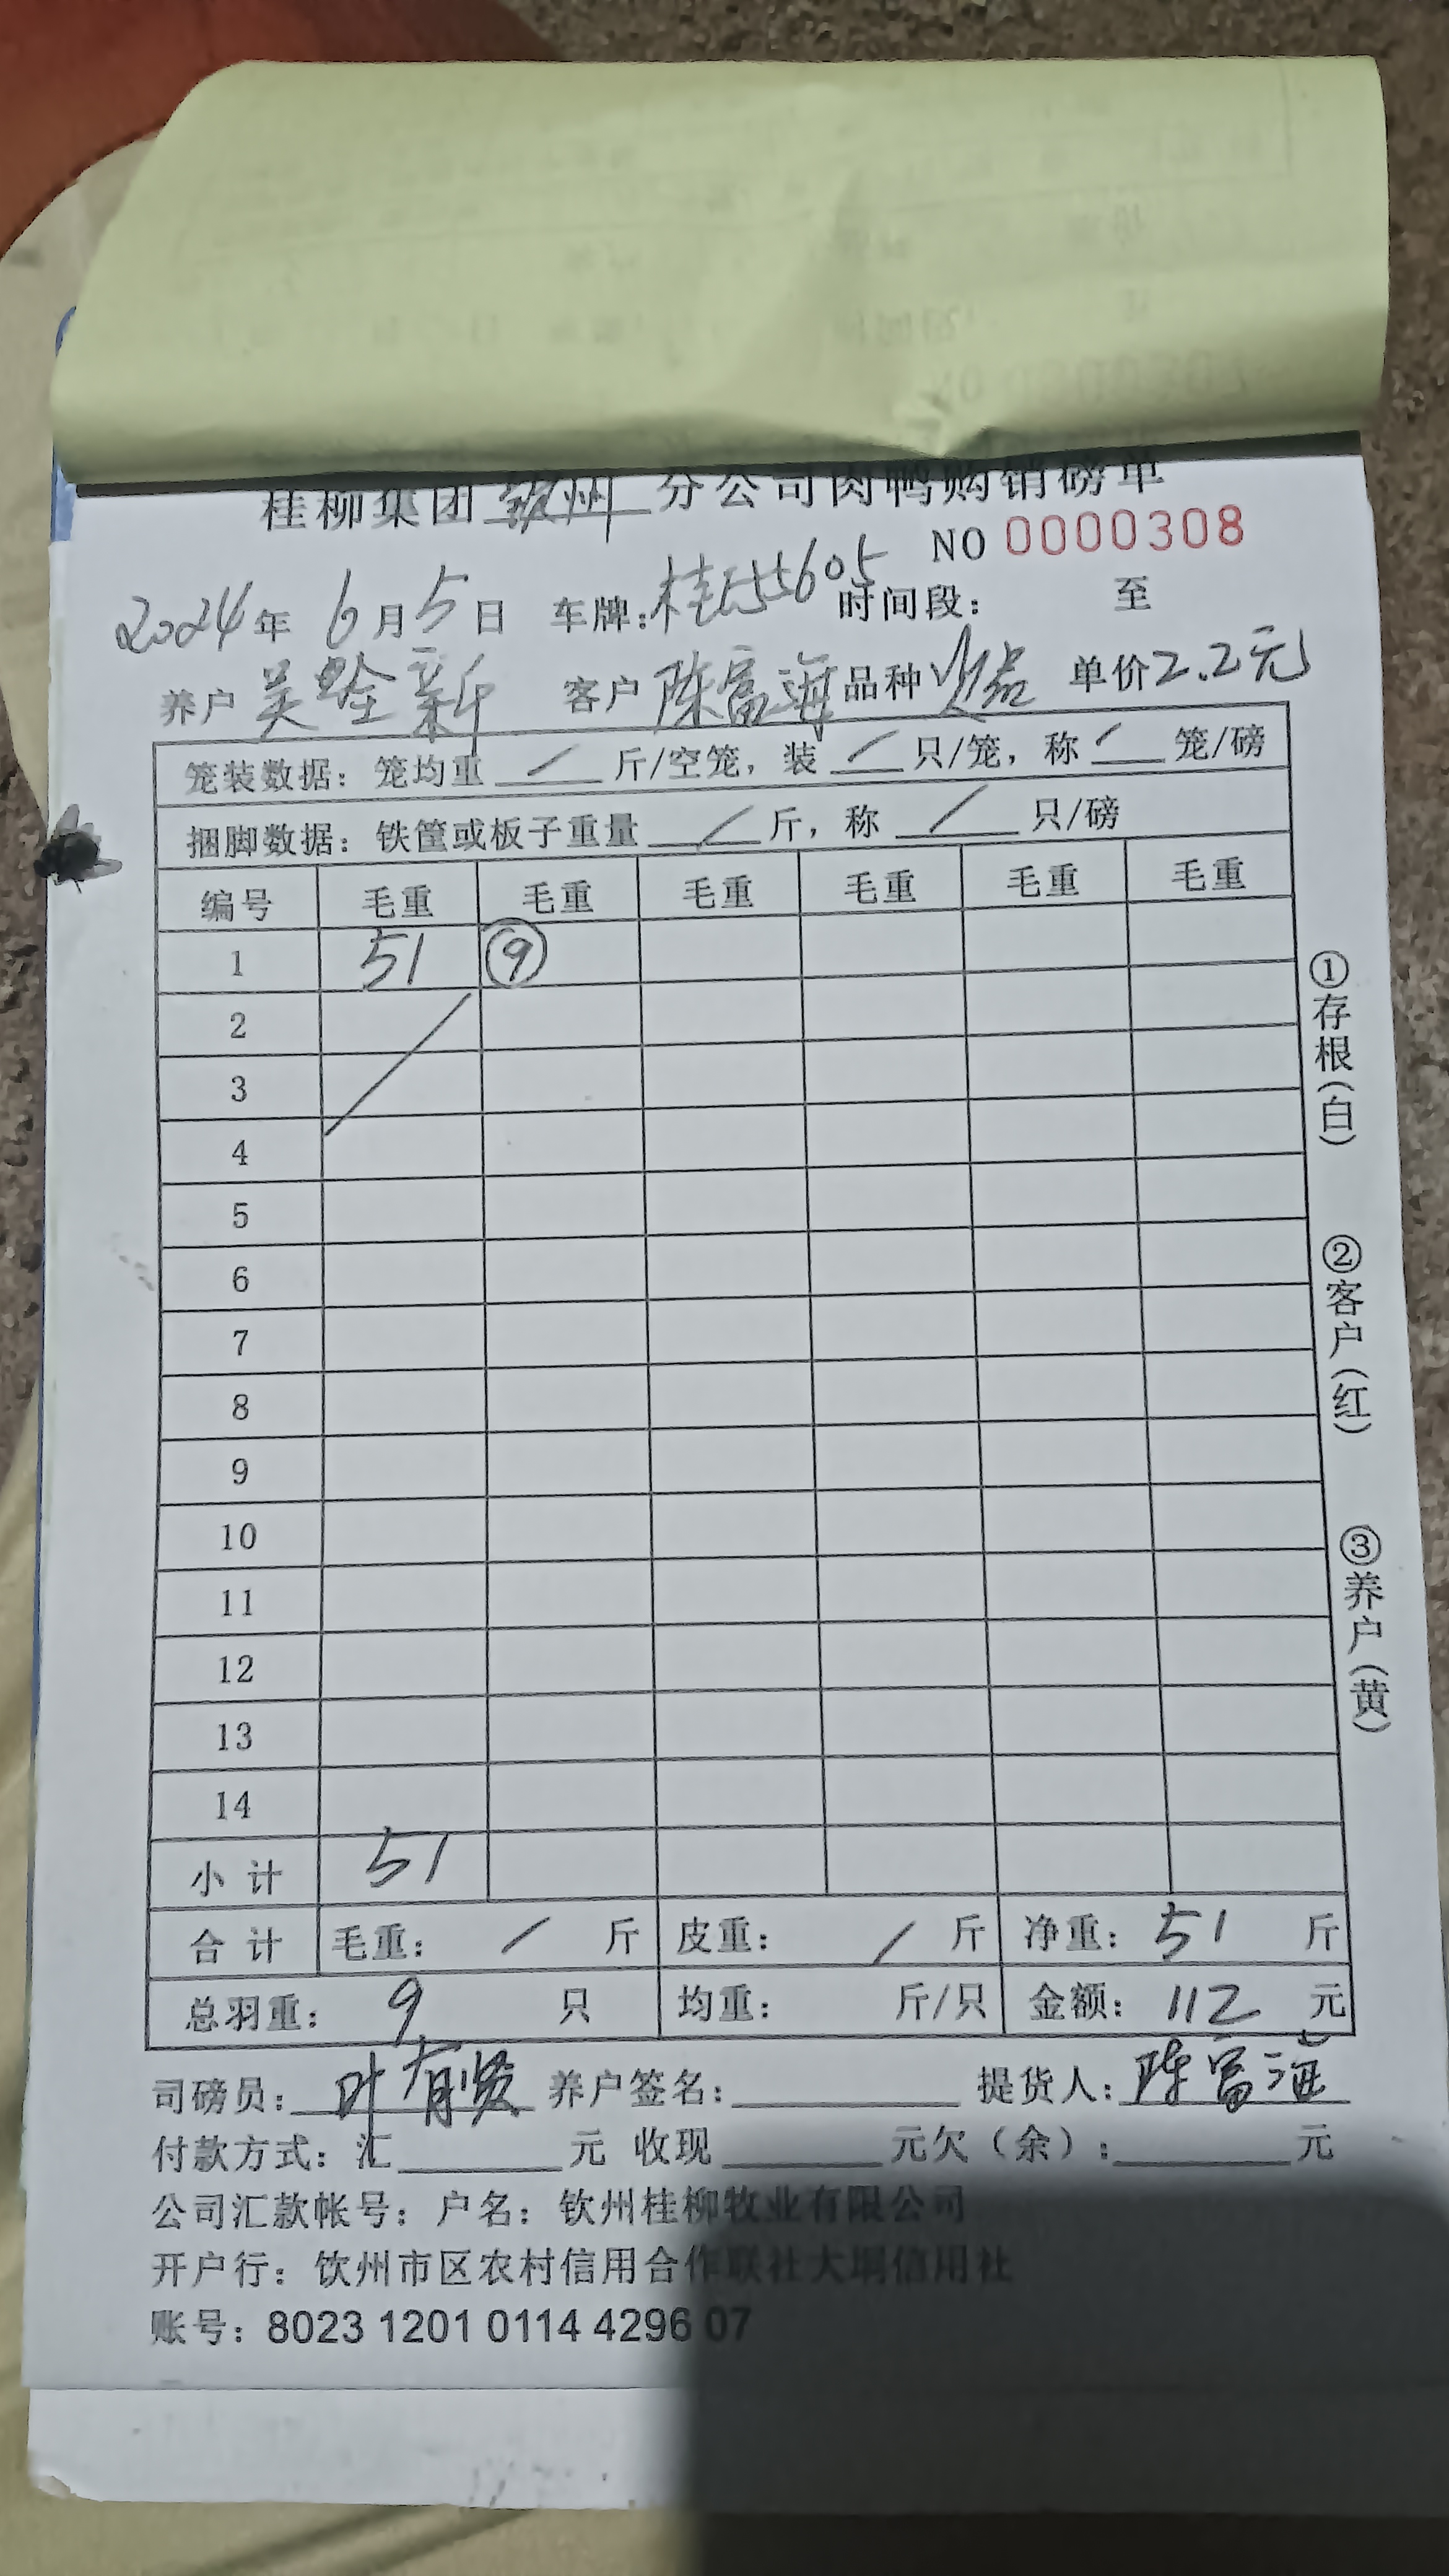 桂柳集团 钦州 分公司肉鸭购销磅单
NO 0000308
2024年 6月5日 车牌: 时间段: 至
养户 吴 新 客户 陈富海 品种 次品 单价 2.2元
笼装数据: 笼均重 / 斤/空笼, 装 / 只/笼, 称 / 笼/磅
捆脚数据: 铁筐或板子重量 / 斤, 称 / 只/磅
编号 毛重 毛重 毛重 毛重 毛重 毛重
1 51 ⑨
2
3
4
5
6
7
8
9
10
11
12
13
14
小计 51
合计 毛重: / 斤 皮重: / 斤 净重: 51 斤
总羽重: 9 只 均重: 斤/只 金额: 112 元
司磅员: 叶有贤 养户签名: 提货人: 陈富海
付款方式: 汇 元 收现 元欠(余): 元
公司汇款帐号: 户名: 钦州桂柳牧业有限公司
开户行: 钦州市区农村信用合作联社大垌信用社
账号: 8023 1201 0114 4296 07
①存根(白)
②客户(红)
③养户(黄)